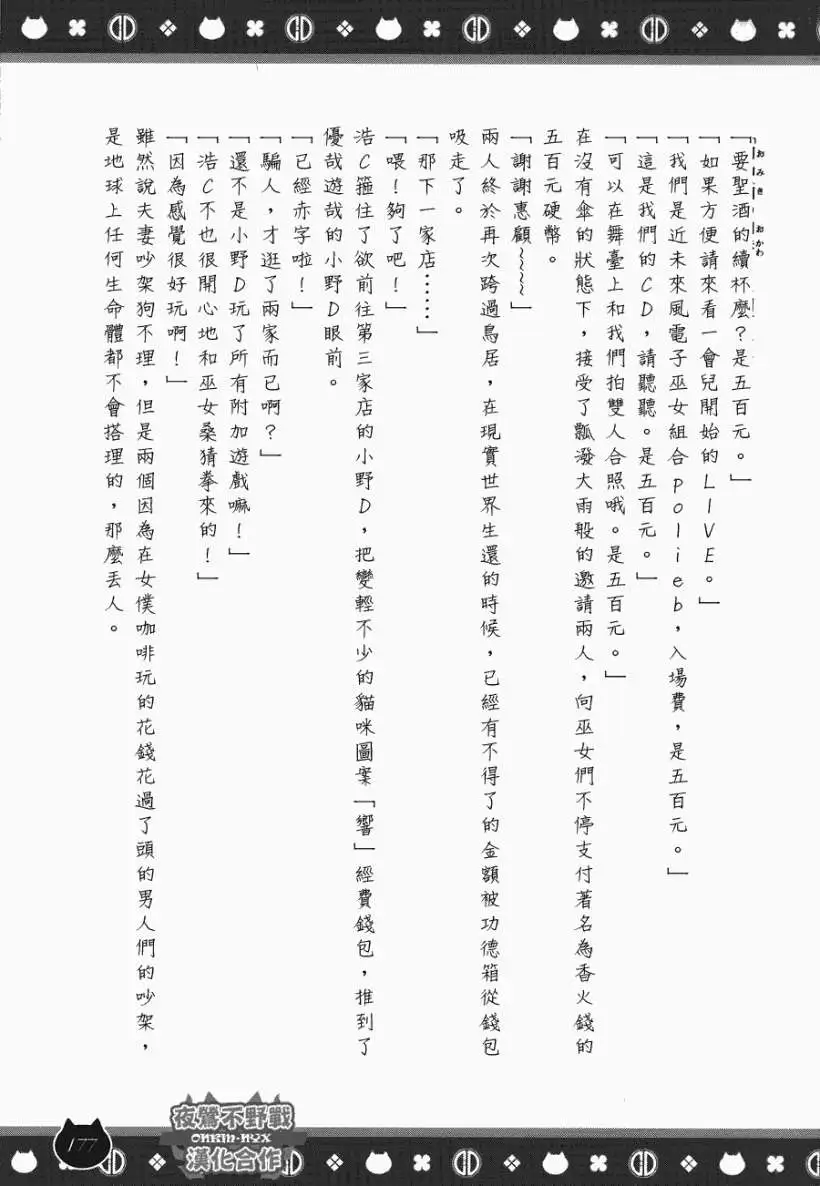 「要聖酒的續杯麼？是五百元。」
おみき
おかわ
「如果方便請來看一會兒開始的LIVE。」
「我們是近未來風電子巫女組合polieb，入場費，是五百元。」
「這是我們的CD，請聽聽。是五百元。」
「可以在舞臺上和我們拍雙人合照哦。是五百元。」
在沒有傘的狀態下，接受了瓢潑大雨般的邀請兩人，向巫女們不停支付著名為香火錢的
五百元硬幣。
「謝謝惠顧～～～～」
兩人終於再次跨過鳥居，在現實世界生還的時候，已經有不得了的金額被功德箱從錢包
吸走了。
「那下一家店……」
「喂！夠了吧！」
浩C箍住了欲前往第三家店的小野D，把變輕不少的貓咪圖案「響」經費錢包，推到了
優哉遊哉的小野D眼前。
「已經赤字啦！」
「騙人，才逛了兩家而已啊？」
「還不是小野D玩了所有附加遊戲嘛！」
「浩C不也很開心地和巫女桑猜拳來的！」
「因為感覺很好玩啊！」
雖然說夫妻吵架狗不理，但是兩個因為在女僕咖啡玩的花錢花過了頭的男人們的吵架，
是地球上任何生命體都不會搭理的，那麼丟人。
177
夜鶯不野戰
ONKIN-NYX
漢化合作